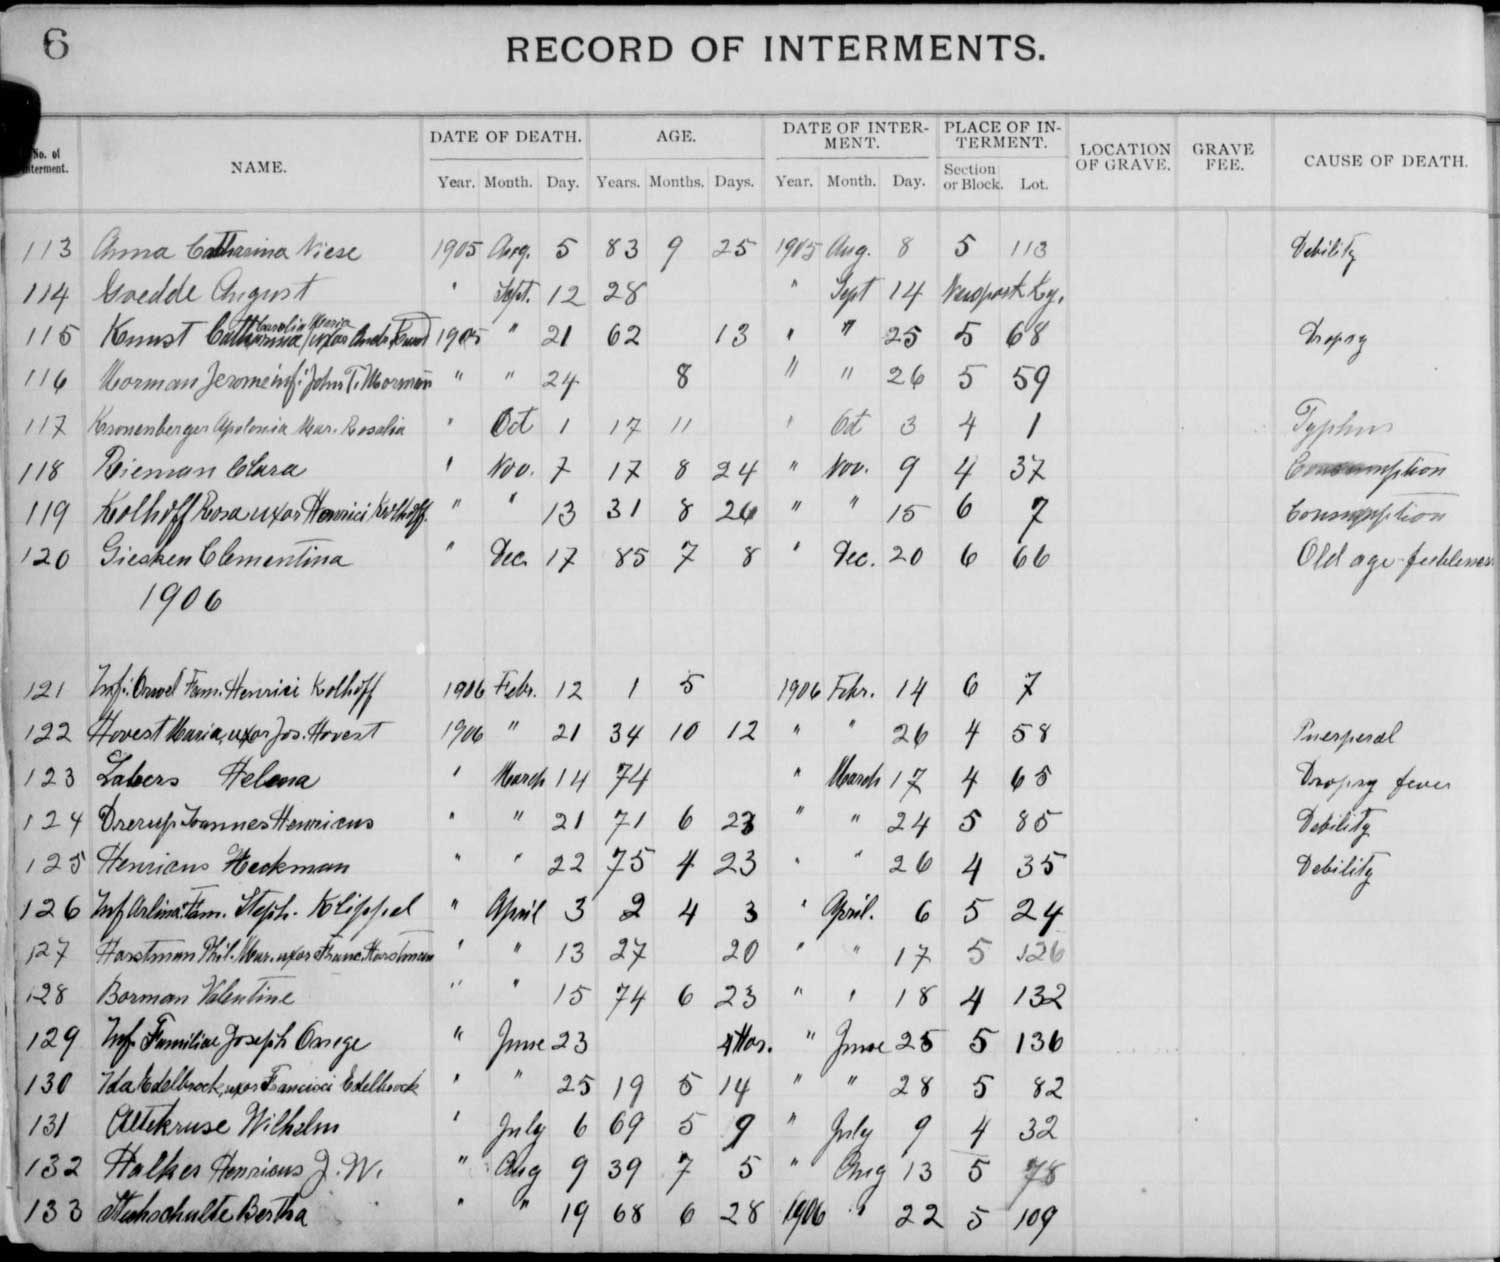 6
RECORD OF INTERMENTS.
No. of Interment. NAME. DATE OF DEATH. AGE. DATE OF INTER-MENT. PLACE OF IN-TERMENT. LOCATION OF GRAVE. GRAVE FEE. CAUSE OF DEATH.
Year. Month. Day. Years. Months. Days. Year. Month. Day. Section or Block. Lot.
113 Anna Catharina Niese 1905 Aug. 5 83 9 25 1905 Aug. 8 5 113 Debility
114 Goedde August " Sept. 12 28 " Sept 14 Newport Ky.
115 Kunst Catharina Maria uxor 1905 " 21 62 13 " " 25 5 68 Dropsy
116 Morman Jerome inf: John T. Morman " " 24 8 " " 26 5 59
117 Kronenberger Apolonia Mar. Rosalia " Oct 1 17 11 " Oct 3 4 1 Typhus
118 Rieman Clara " Nov. 7 17 8 24 " Nov. 9 4 37 Consumption
119 Kolhoff Rosa uxor Henrici Kolhoff. " " 13 31 8 26 " " 15 6 7 Consumption
120 Giesken Clementina " Dec. 17 85 7 8 " Dec. 20 6 66 Old age-feebleness
1906
121 Inf: Orwel Fam. Henrici Kolhoff 1906 Febr. 12 1 5 1906 Febr. 14 6 7
122 Hovest Maria, uxor Jos. Hovest 1906 " 21 34 10 12 " " 26 4 58 Puerperal
123 Labers Helena " March 14 74 " March 17 4 65 Dropsy fever
124 Drerup Joannes Henricus " " 21 71 6 23 " " 24 5 85 Debility
125 Henricus Heckman " " 22 75 4 23 " " 26 4 35 Debility
126 Inf Arlina Fam. Steph. Klippel " April 3 2 4 3 " April. 6 5 24
127 Horstman Phil. Mar. uxor Franc. Horstman " " 13 27 20 " " 17 5 126
128 Borman Valentine " " 15 74 6 23 " " 18 4 132
129 Inf. Familiae Joseph " June 23 4 Hor. " June 25 5 136
130 Ida Edelbrock, uxor Francisci Edelbrock " " 25 19 5 14 " " 28 5 82
131 Altekruse Wilhelm " July 6 69 5 9 " July 9 4 32
132 Halker Henricus J. W. " Aug 9 39 7 5 " Aug 13 5 78
133 Stuhschulte Bertha " " 19 68 6 28 1906 " 22 5 109